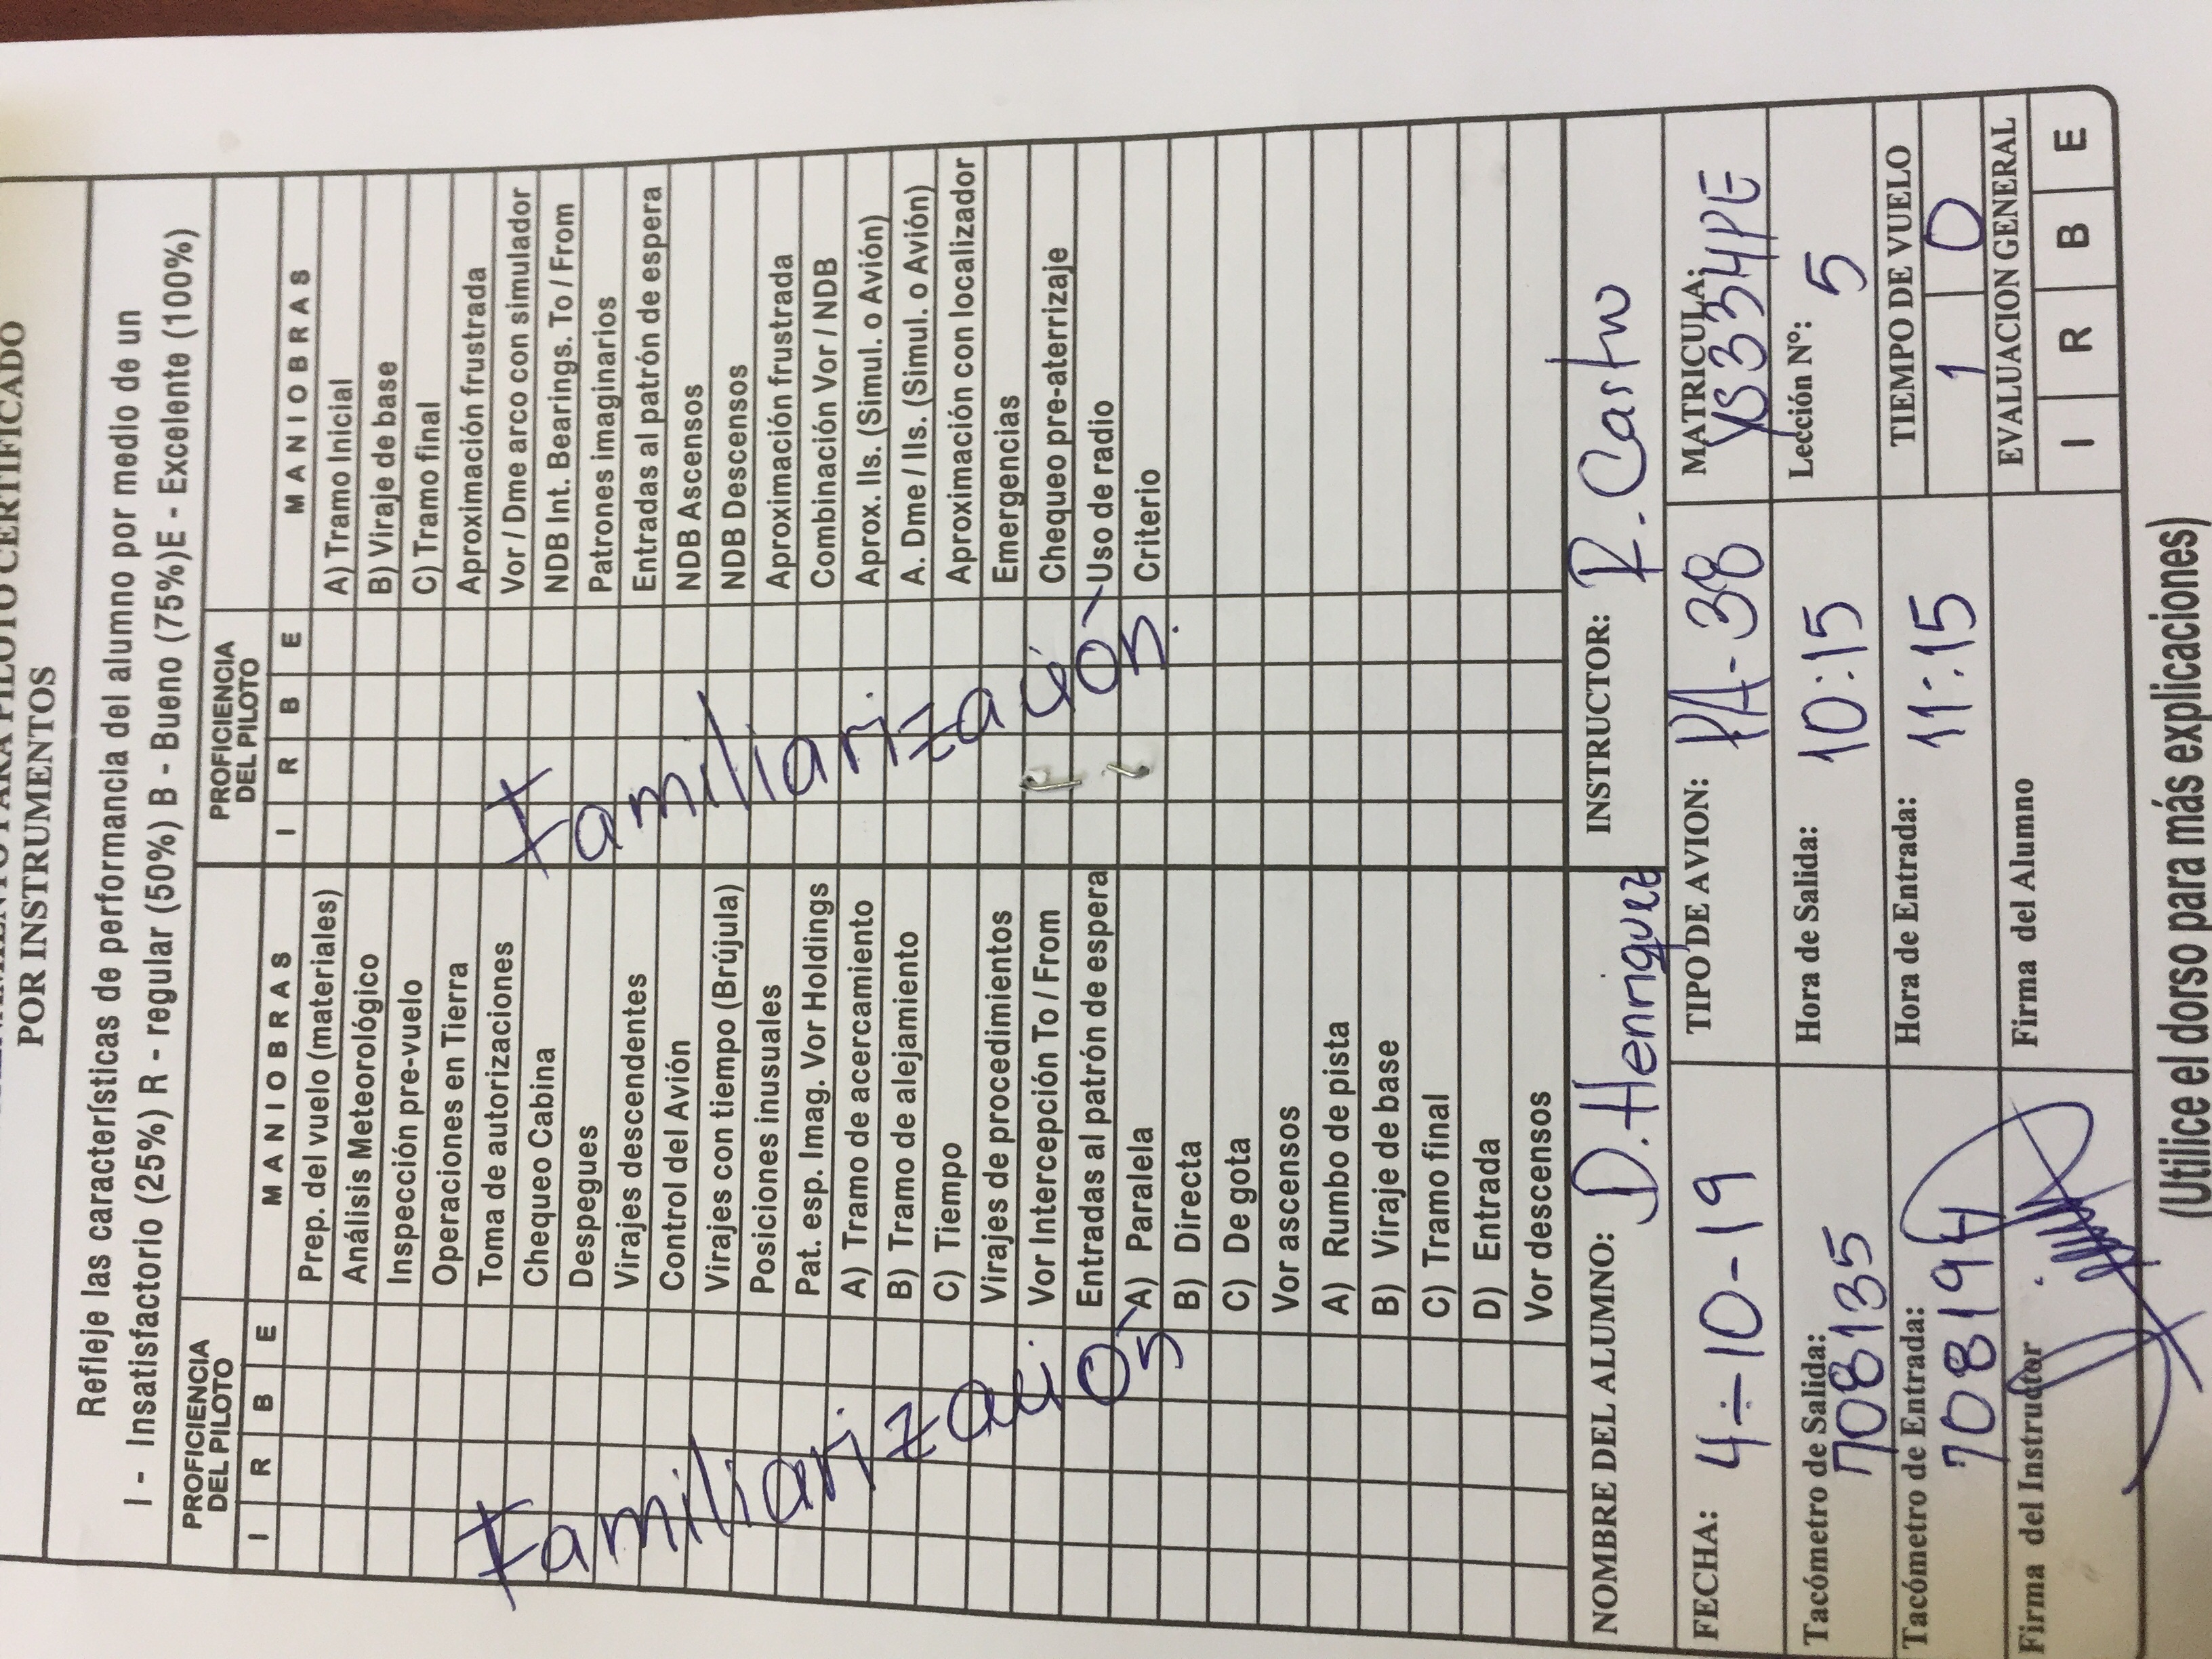 PARA PILOTO CERTIFICADO
POR INSTRUMENTOS
Refleje las características de performancia del alumno por medio de un
I - Insatisfactorio (25%) R - regular (50%) B - Bueno (75%)E - Excelente (100%)
PROFICIENCIA
DEL PILOTO
I R B E MANIOBRAS
Prep. del vuelo (materiales)
Análisis Meteorológico
Inspección pre-vuelo
Operaciones en Tierra
Toma de autorizaciones
Chequeo Cabina
Despegues
Virajes descendentes
Control del Avión
Virajes con tiempo (Brújula)
Posiciones inusuales
Pat. esp. Imag. Vor Holdings
A) Tramo de acercamiento
B) Tramo de alejamiento
C) Tiempo
Virajes de procedimientos
Vor Intercepción To / From
Entradas al patrón de espera
A) Paralela
B) Directa
C) De gota
Vor ascensos
A) Rumbo de pista
B) Viraje de base
C) Tramo final
D) Entrada
Vor descensos
Familiarización
PROFICIENCIA
DEL PILOTO
I R B E MANIOBRAS
A) Tramo Inicial
B) Viraje de base
C) Tramo final
Aproximación frustrada
Vor / Dme arco con simulador
NDB Int. Bearings. To / From
Patrones imaginarios
Entradas al patrón de espera
NDB Ascensos
NDB Descensos
Aproximación frustrada
Combinación Vor / NDB
Aprox. Ils. (Simul. o Avión)
A. Dme / Ils. (Simul. o Avión)
Aproximación con localizador
Emergencias
Chequeo pre-aterrizaje
Uso de radio
Criterio
Familiarización.
NOMBRE DEL ALUMNO: D. Henriquez INSTRUCTOR: R. Castro
FECHA: 4-10-19 TIPO DE AVION: PA-38 MATRICULA: YS334PE
Tacómetro de Salida: 708135 Hora de Salida: 10:15 Lección N°: 5
Tacómetro de Entrada: 70819 Hora de Entrada: 11:15 TIEMPO DE VUELO
1 0
Firma del Instructor Firma del Alumno EVALUACION GENERAL
I R B E
(Utilice el dorso para más explicaciones)